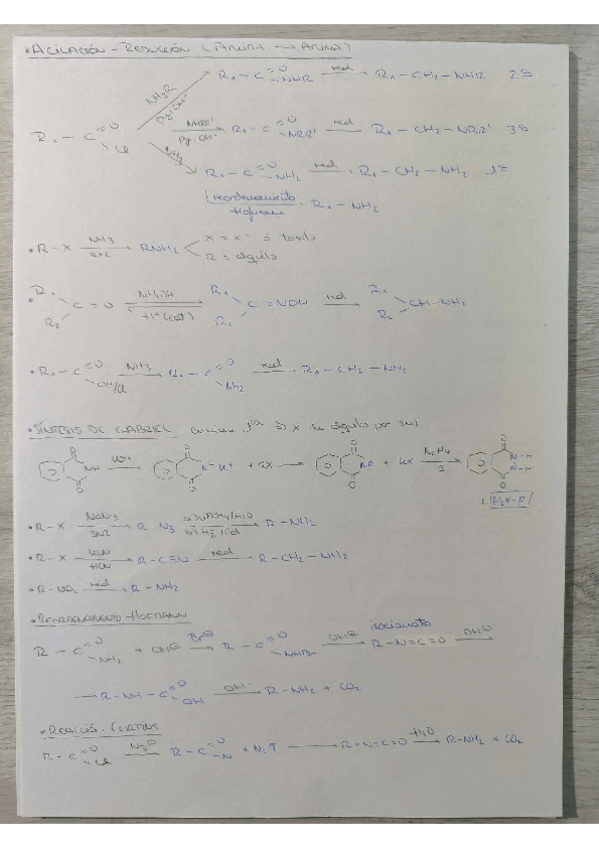 • ACILACIÓN - REDUCCIÓN (AMIDA → AMINA)
R₁-C=O NHR →red R₁-CH₂-NHR 2ª
NH₂R
Py·OH⁻
R₁-C=O Cl →NHRR' Py·OH⁻ R₁-C=O NRR' →red R₁-CH₂-NRR' 3ª
NH₃
R₁-C=O NH₂ →red R₁-CH₂-NH₂ 1ª
reordenamiento Hofmann R₁-NH₂
• R-X →NH₃ exc RNH₂ X = X⁻ ó tosilo
R = alquilo
• R₁ R₂ C=O →NH₂OH +H⁺(cat) R₁ R₂ C=NOH →red R₁ R₂ CH-NH₂
• R₁-C=O OH/Cl →NH₃ R₁-C=O NH₂ →red R₁-CH₂-NH₂
• SÍNTESIS DE GABRIEL X alquilo por SN2
O NH O →KOH O N⁻K⁺ O + RX → O NR O + KX →N₂H₄ O N-H N-H O
• R-X →NaN₃ SN2 R-N₃ →a) LiAlH₄/H₂O b) H₂, Pd R-NH₂
• R-X →KCN HCN R-C≡N →red R-CH₂-NH₂
• R-NO₂ →red R-NH₂
• REORDENAMIENTO HOFMANN
isocianato
R-C=O NH₂ + OH⊖ → R-C=O NHBr →OH⊖ R-N=C=O →OH⊖
→ R-NH-C=O OH →OH⁻ R-NH₂ + CO₂
• REACCIÓN CURTIUS
R-C=O Cl →N₃⊖ R-C=O N + N₂↑ → R-N=C=O →H₂O R-NH₂ + CO₂